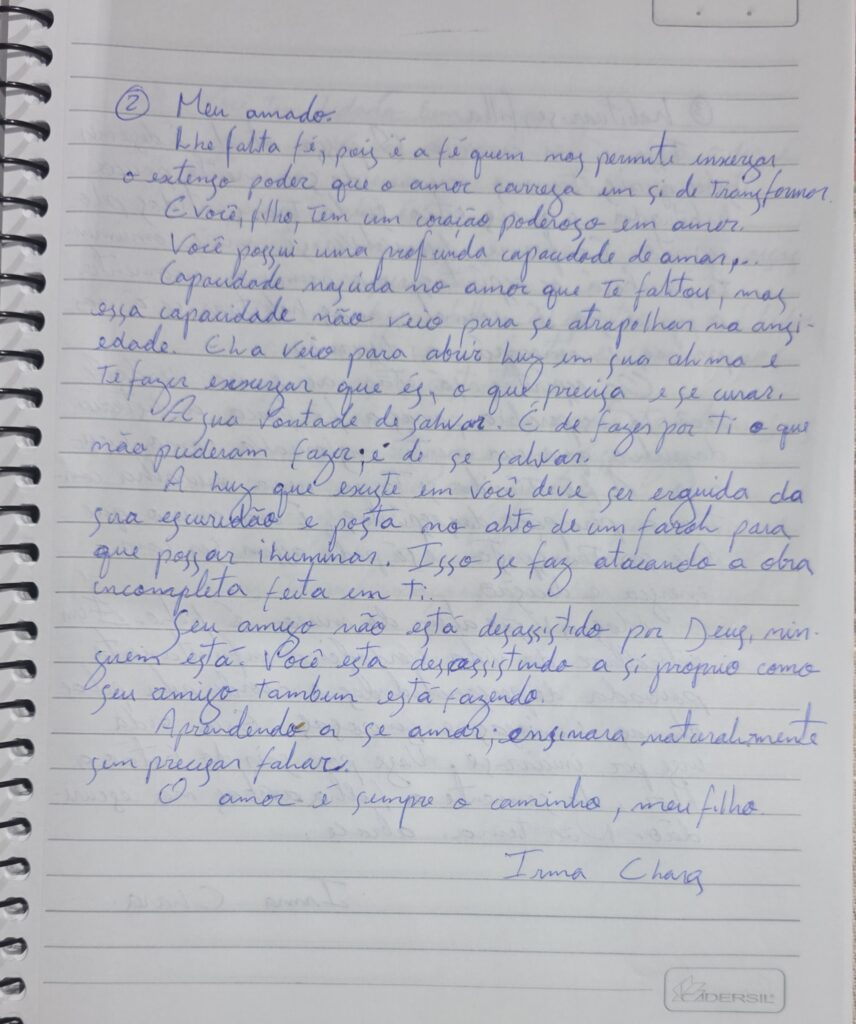 ② Meu amado.
Lhe falta fé, pois é a fé quem nos permite enxergar
o extenso poder que o amor carrega em si de transformar.
E você, filho, tem um coração poderoso em amor.
Você possui uma profunda capacidade de amar...
Capacidade nascida no amor que te faltou, mas
essa capacidade não veio para se atrapalhar na ansi-
edade. Ela veio para abrir luz em sua alma e
te fazer exxergar que és, o que precisa e se curar.
A sua vontade de salvar. É de fazer por ti o que
não puderam fazer; é de se salvar.
A luz que existe em você deve ser erguida da
sua escuridão e posta no alto de um farol para
que possar iluminar. Isso se faz atacando a obra
incompleta feita em ti.
Seu amigo não está desassistido por Deus, nin-
guem está. Você esta desassistindo a si proprio como
seu amigo tambem está fazendo.
Aprendendo a se amar; ensinara naturalmente
sem precisar falar.
O amor é sempre o caminho, meu filho.
Irma Clara
CADERSIL